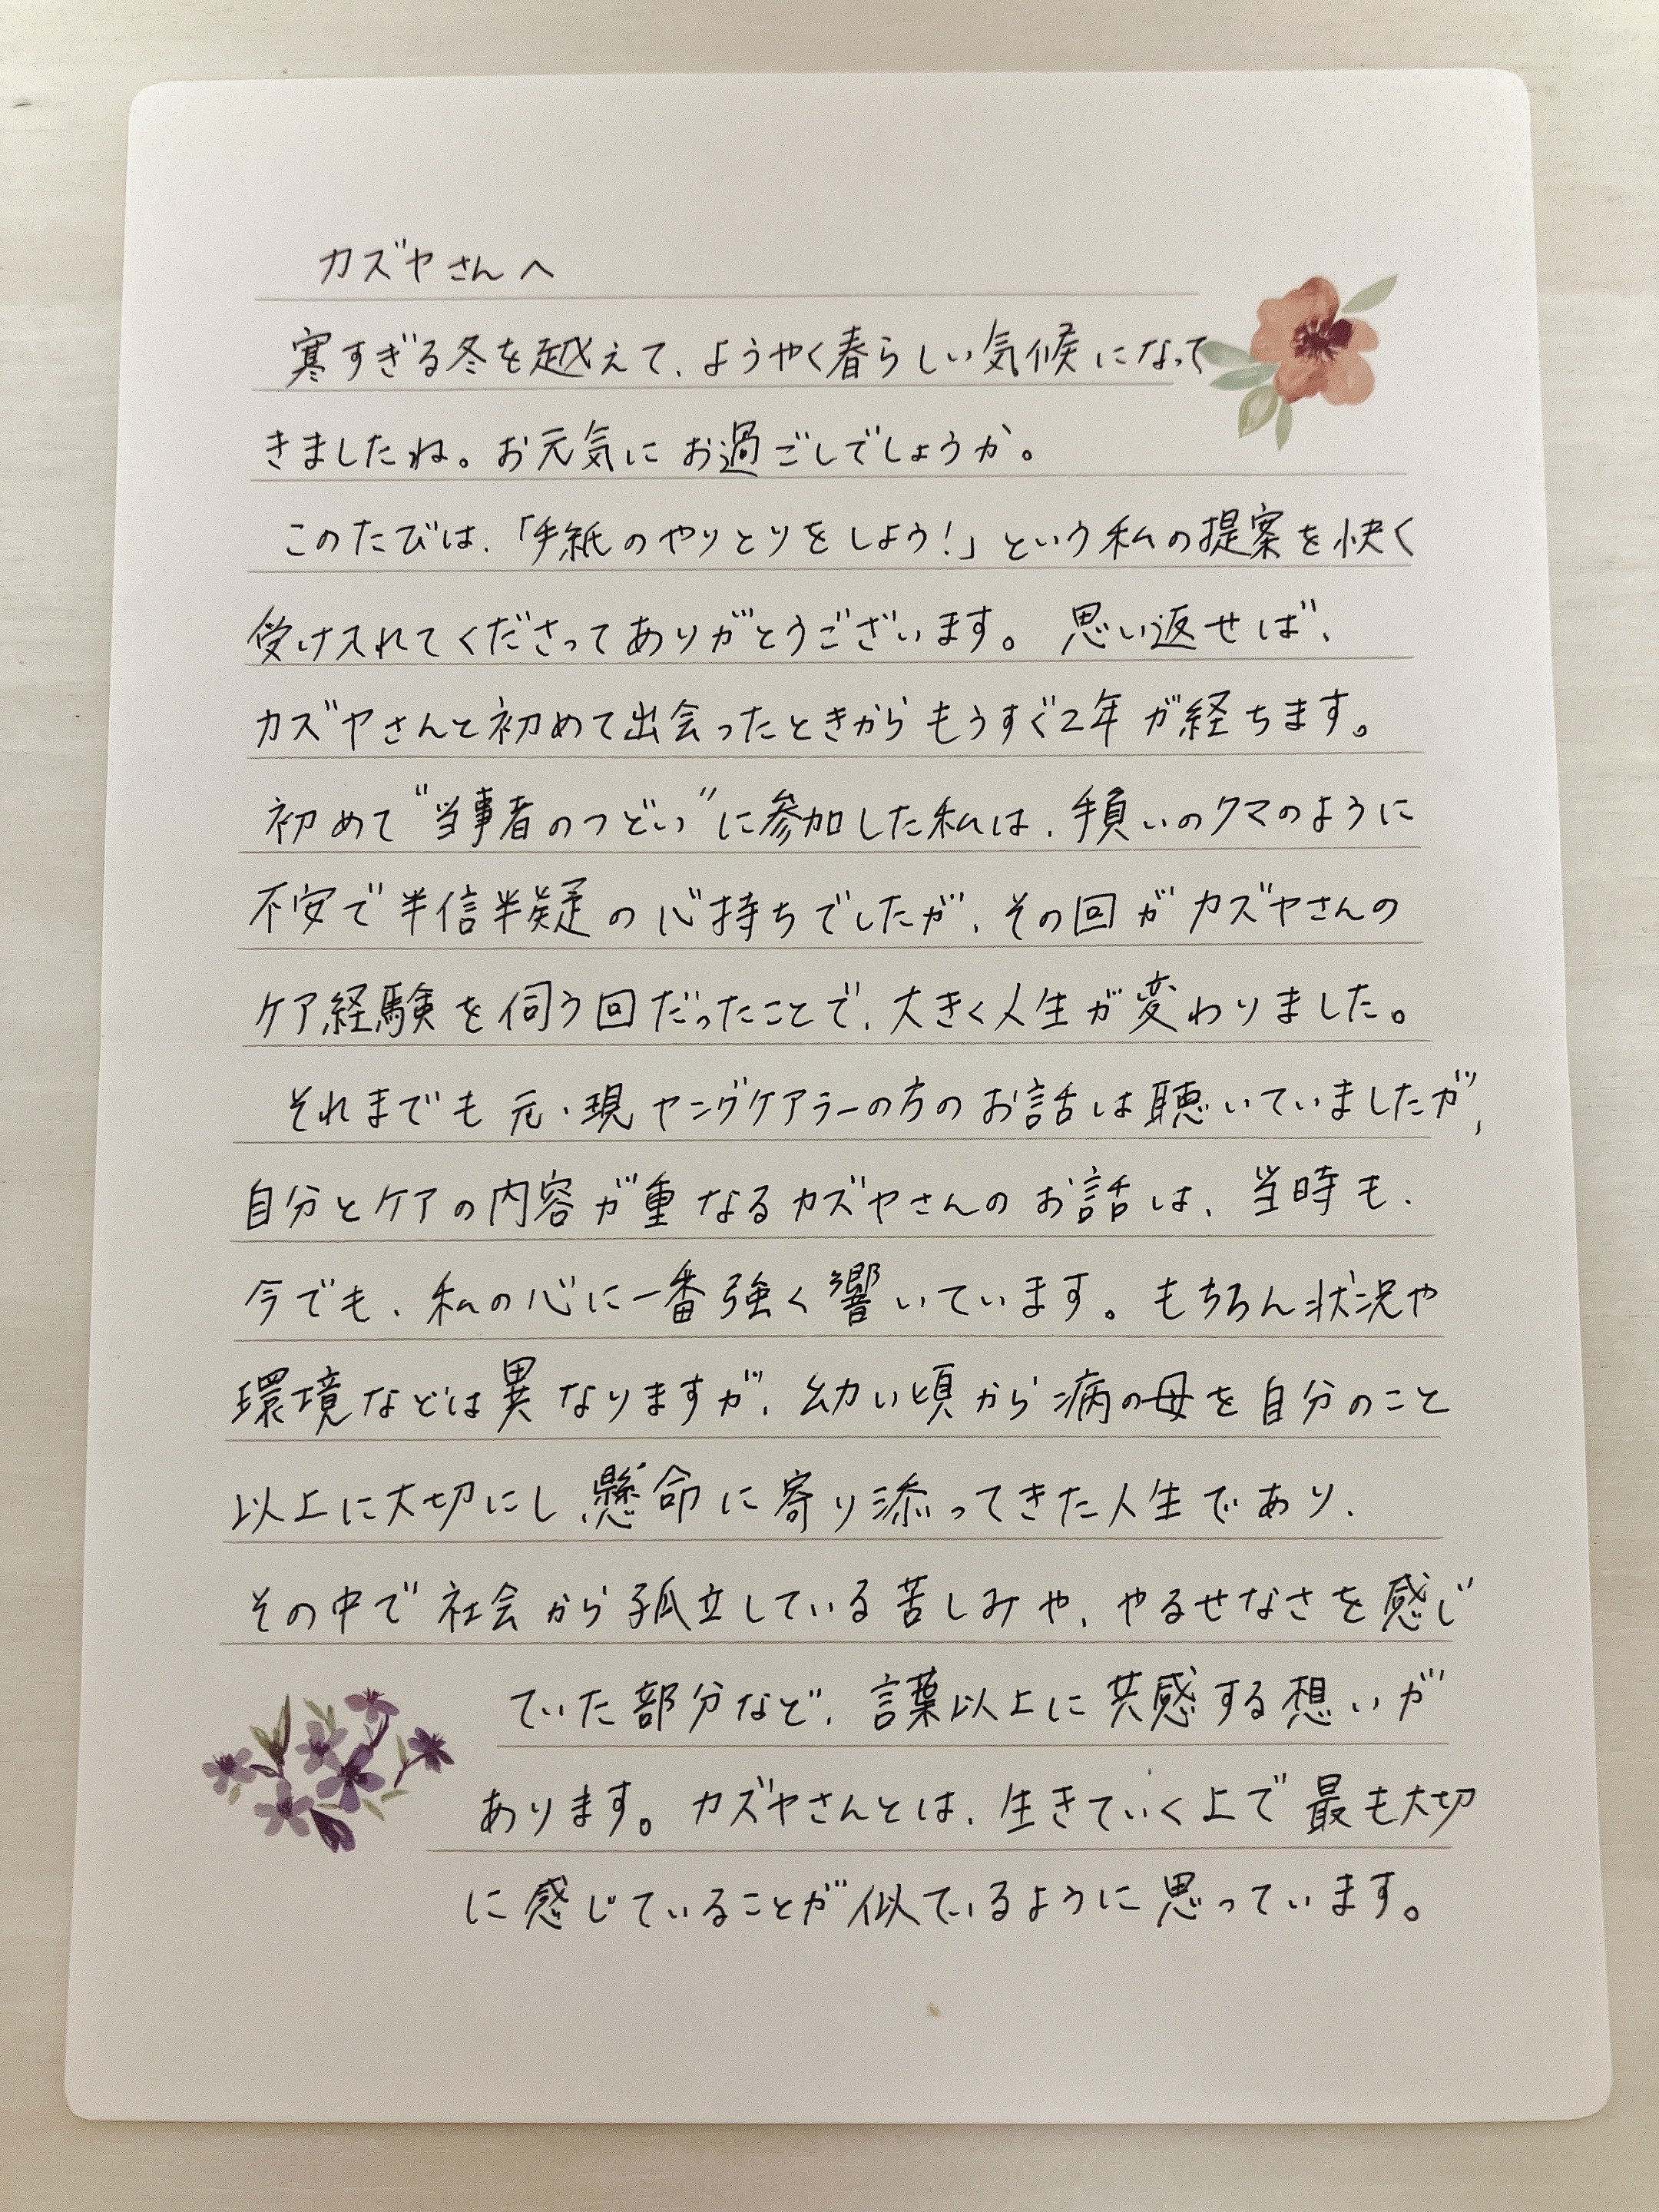 カズヤさんへ
寒すぎる冬を越えて、ようやく春らしい気候になって
きましたね。お元気にお過ごしでしょうか。
このたびは、「手紙のやりとりをしよう!」という私の提案を快く
受け入れてくださってありがとうございます。思い返せば、
カズヤさんと初めて出会ったときからもうすぐ2年が経ちます。
初めて“当事者のつどい”に参加した私は、手負いのクマのように
不安で半信半疑の心持ちでしたが、その回がカズヤさんの
ケア経験を伺う回だったことで、大きく人生が変わりました。
それまでも元・現ヤングケアラーの方のお話は聴いていましたが、
自分とケアの内容が重なるカズヤさんのお話は、当時も、
今でも、私の心に一番強く響いています。もちろん状況や
環境などは異なりますが、幼い頃から病の母を自分のこと
以上に大切にし、懸命に寄り添ってきた人生であり、
その中で社会から孤立している苦しみや、やるせなさを感じ
ていた部分など、言葉以上に共感する想いが
あります。カズヤさんとは、生きていく上で最も大切
に感じていることが似ているように思っています。